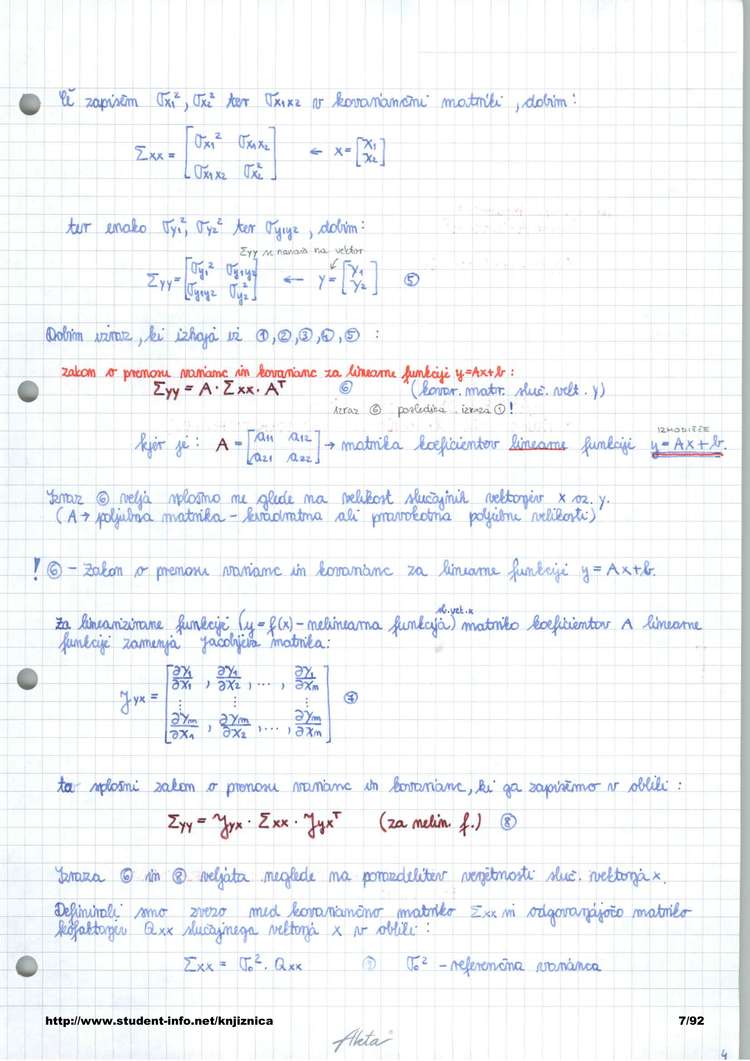 Če zapišem σx₁², σx₂² ter σx₁x₂ v kovariančni matriki, dobim:
Σxx = [σx₁² σx₁x₂ ← x = [x₁
σx₁x₂ σx₂²] x₂]
ter enako σy₁², σy₂² ter σy₁y₂, dobim:
Σyy se nanaša na vektor
Σyy = [σy₁² σy₁y₂ ← y = [y₁
σy₁y₂ σy₂²] y₂] ⑤
Dobim izraz, ki izhaja iz ①,②,③,④,⑤ :
zakon o prenosu varianc in kovarianc za linearne funkcije y=Ax+b :
Σyy = A · Σxx · Aᵀ ⑥ (kovar. matr. sluč. vekt. y)
izraz ⑥ posledica izraza ①!
IZHODIŠČE
kjer je : A = [a₁₁ a₁₂ → matrika koeficientov linearne funkcije y = Ax + b.
a₂₁ a₂₂]
Izraz ⑥ velja splošno ne glede na velikost slučajnih vektorjev x oz. y.
(A → poljubna matrika - kvadratna ali pravokotna poljubne velikosti)
! ⑥ - Zakon o prenosu varianc in kovarianc za linearne funkcije y = Ax+b.
sl. vek. x
Za linearizirane funkcije (y = f(x) - nelinearna funkcija) matriko koeficientov A linearne
funkcije zamenja Jacobijeva matrika:
Jyx = [∂y₁/∂x₁ , ∂y₁/∂x₂ , ... , ∂y₁/∂xn
⋮ ⋮ ⋮
∂ym/∂x₁ , ∂ym/∂x₂ , ... , ∂ym/∂xn] ⑦
ta splošni zakon o prenosu varianc in kovarianc, ki ga zapišemo v obliki :
Σyy = Jyx · Σxx · Jyxᵀ (za nelin. f.) ⑧
Izraza ⑥ in ⑧ veljata neglede na porazdelitev verjetnosti sluč. vektorja x.
Definirali smo zvezo med kovariančno matriko Σxx in odgovarjajočo matriko
kofaktorjev Qxx slučajnega vektorja x v obliki :
Σxx = σ₀² · Qxx σ₀² - referenčna varianca
http://www.student-info.net/knjiznica 7/92
Akta
4